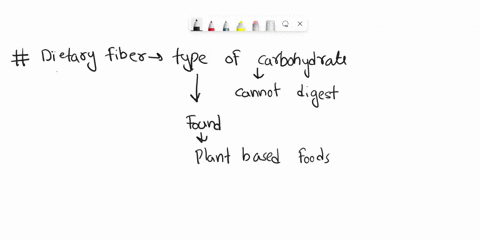 # Dietary fiber → type of carbohydrate
↓ cannot digest
↓
Found
↓
Plant based foods